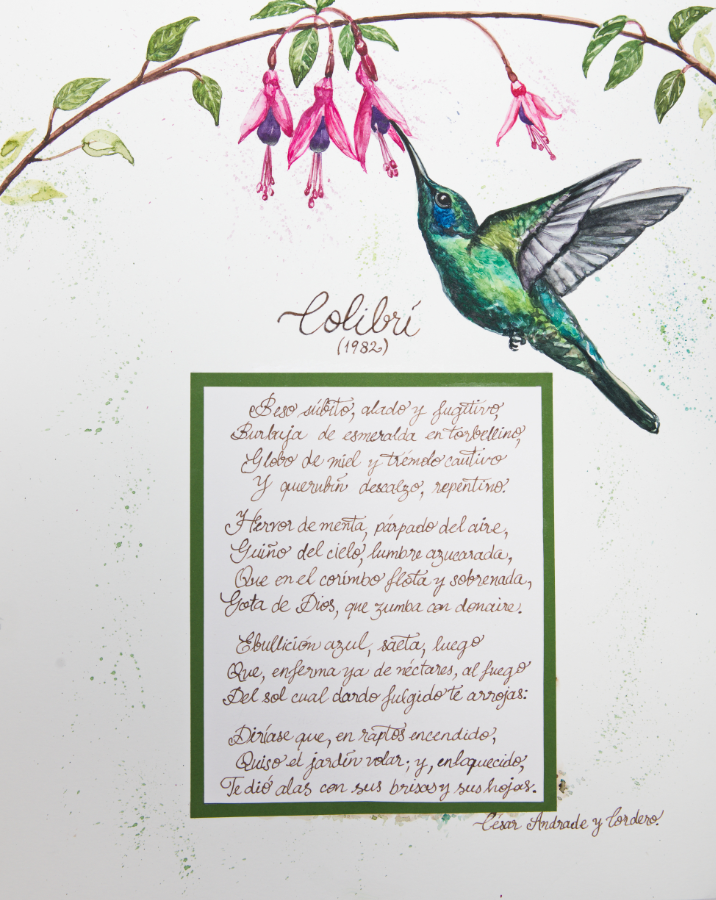 Colibrí
(1982)
Beso súbito, alado y fugitivo,
Burbuja de esmeralda en torbellino,
Globo de miel y trémolo cautivo
Y querubín descalzo, repentino.
Hervor de menta, párpado del aire,
Guiño del cielo, lumbre azucarada,
Que en el corimbo flota y sobrenada,
Gota de Dios, que zumba con donaire.
Ebullición azul, saeta, luego
Que, enferma ya de néctares, al fuego
Del sol cual dardo fúlgido te arrojas:
Diríase que, en raptos encendido,
Quiso el jardín volar; y, enloquecido,
Te dió alas con sus brisas y sus hojas.
César Andrade y Cordero.